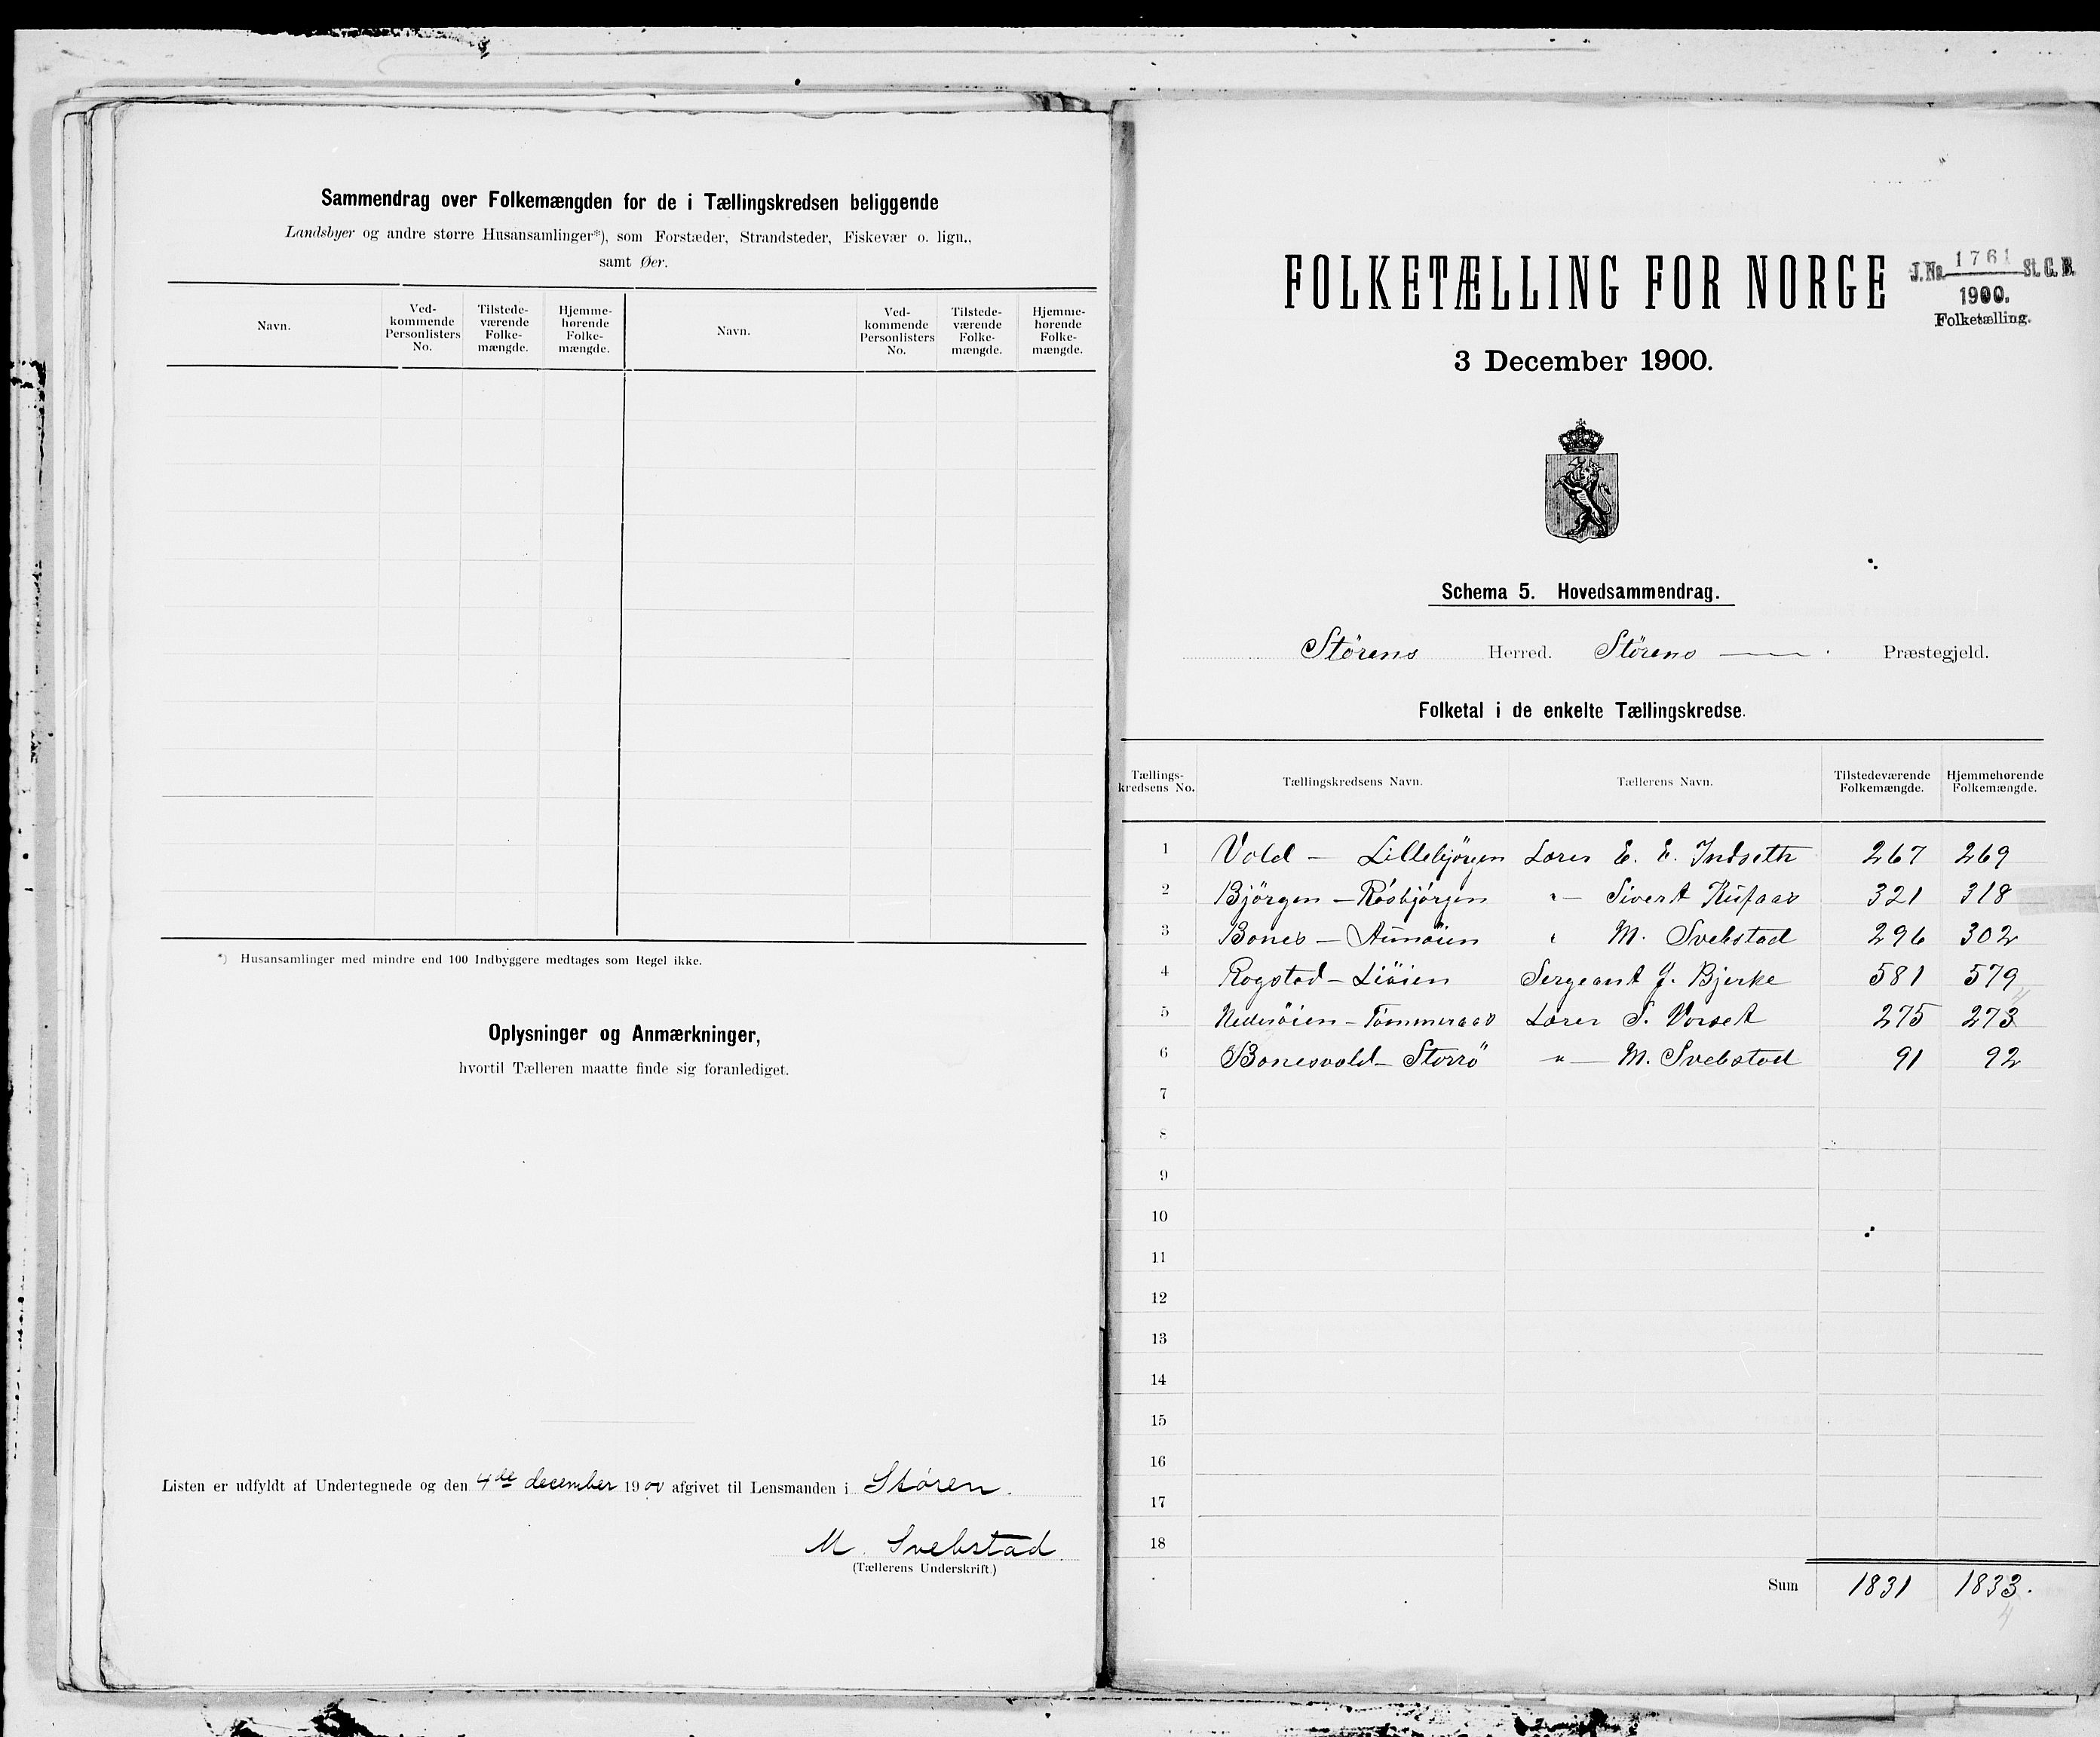 Sammendrag over Folkemængden for de i Tællingskredsen beliggende
Landsbyer og andre større Husansamlinger*), som Forstæder, Strandsteder, Fiskevær o. lign.,
samt Øer.
Navn. Ved-kommende Personlisters No. Tilstede-værende Folke-mængde. Hjemme-hørende Folke-mængde. Navn. Ved-kommende Personlisters No. Tilstede-værende Folke-mængde. Hjemme-hørende Folke-mængde.
*) Husansamlinger med mindre end 100 Indbyggere medtages som Regel ikke.
Oplysninger og Anmærkninger,
hvortil Tælleren maatte finde sig foranlediget.
Listen er udfyldt af Undertegnede og den 4de december 1900 afgivet til Lensmanden i Støren.
M. Svebstad
(Tællerens Underskrift.)
FOLKETÆLLING FOR NORGE
J.No. 1761 St. C. B.
1900.
Folketælling.
3 December 1900.
Schema 5. Hovedsammendrag.
Størens Herred. Størens Præstegjeld.
Folketal i de enkelte Tællingskredse.
Tællings-kredsens No. Tællingskredsens Navn. Tællerens Navn. Tilstedeværende Folkemængde. Hjemmehørende Folkemængde.
1 Vold - Lillebjörgen Lærer E. E. Indseth 267 269
2 Björgen - Rösbjörgen " - Sivert 321 318
3 Bones - " M. Svebstad 296 302
4 Rogstad - Liöien Sergeant J. Bjerke 581 579
5 Nederöien - Tömmeraas Lærer S. Vorset 275 273
6 Bonesvold - Storrö " - M. Svebstad 91 92
7
8
9
10
11
12
13
14
15
16
17
18
Sum 1831 1833.
4